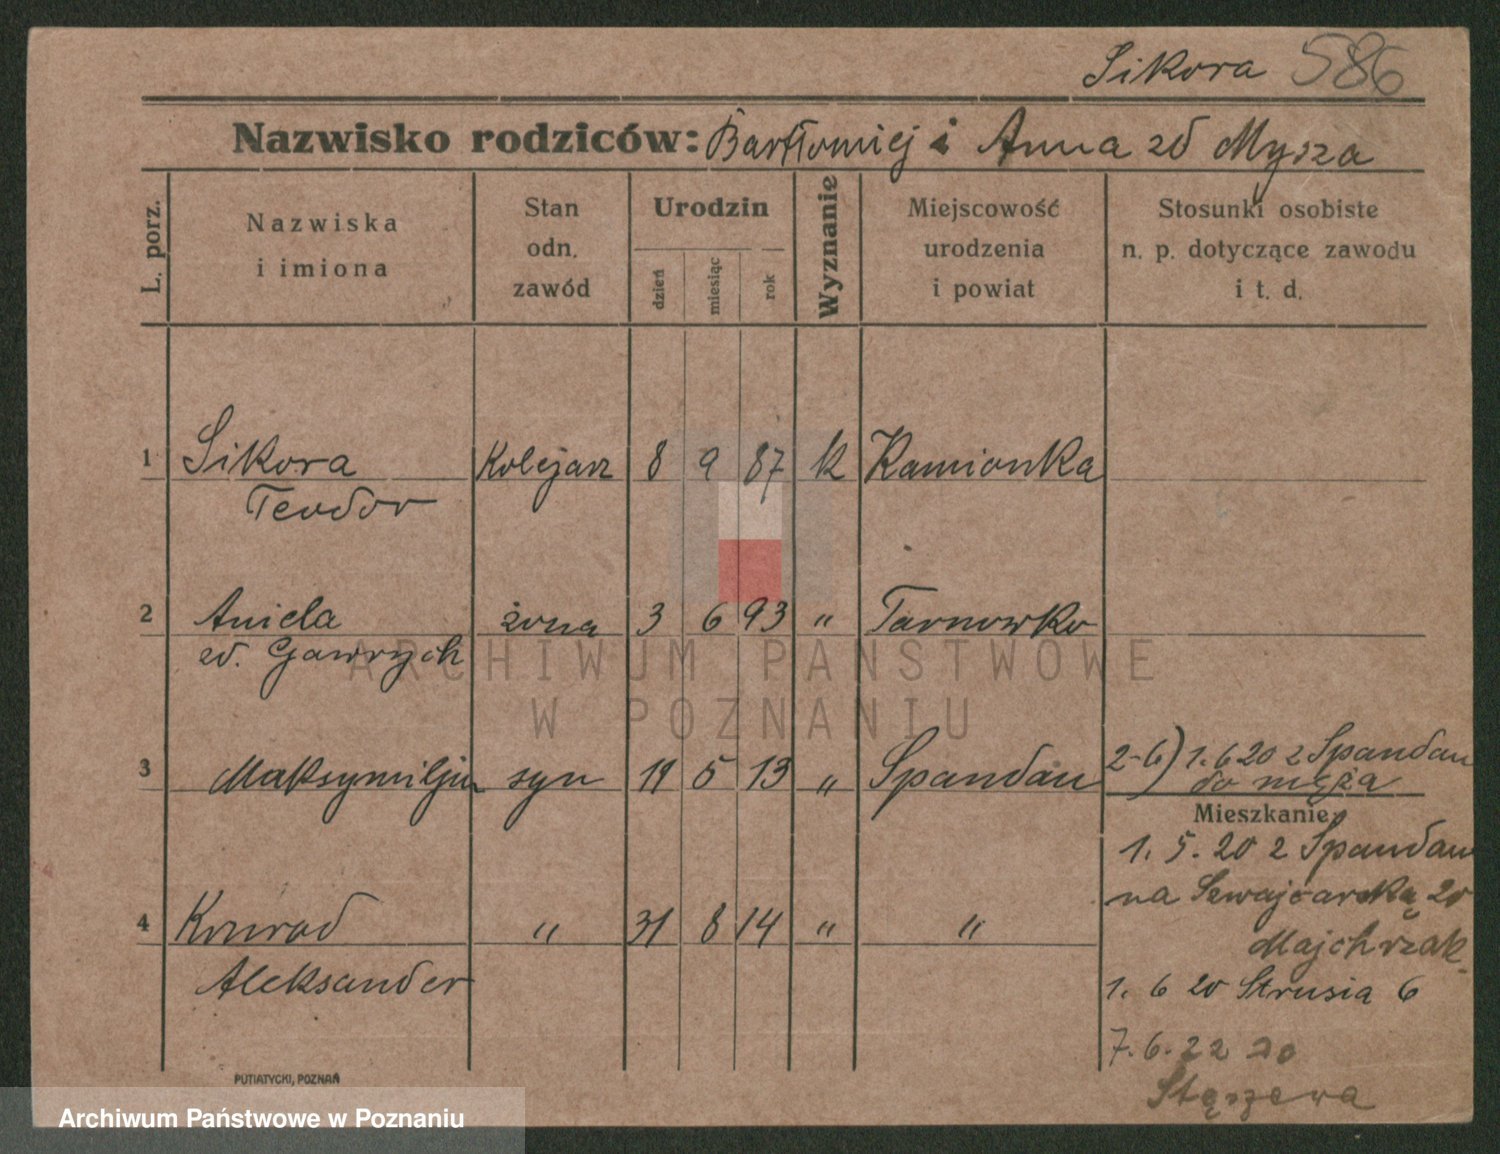 Sikora 586
Nazwisko rodziców: Bartłomiej i Anna zd Mysza
L. porz.
Nazwiska
i imiona
Stan
odn.
zawód
Urodzin
dzień
miesiąc
rok
Wyznanie
Miejscowość
urodzenia
i powiat
Stosunki osobiste
n. p. dotyczące zawodu
i t. d.
1 Sikora Kolejarz 8 9 87 k Kamionka
Teodor
2 Aniela żona 3 6 93 " Tarnowko
zd. Gawrych
3 Maksymiljan syn 19 5 13 " Spandau
2-6) 1.6 20 z Spandau
do męża
Mieszkanie
1. 5. 20 z Spandau
na Szwajcarską 20
Majchrzak
4 Konrad " 31 8 14 " "
Aleksander
1. 6 20 Strusia 6
7. 6. 22 do
Stęszewa
PUTIATYCKI, POZNAŃ
ARCHIWUM PAŃSTWOWE
W POZNANIU
Archiwum Państwowe w Poznaniu